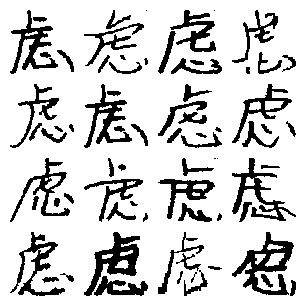 虑虑虑虑
虑虑虑虑
虑虑虑虑
虑虑虑虑